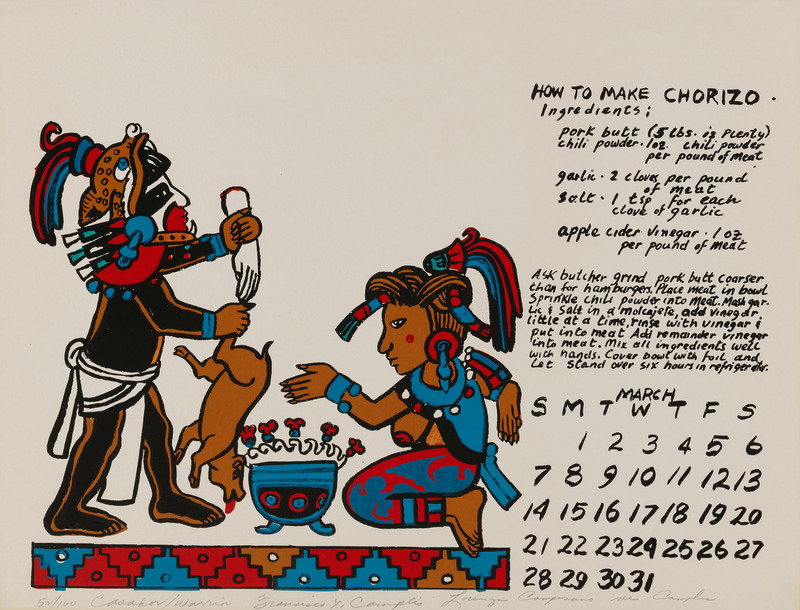 HOW TO MAKE CHORIZO.
Ingredients;
pork butt (5 lbs. is plenty)
chili powder. 1oz. chili powder
per pound of meat
garlic. 2 cloves per pound
of meat
Salt. 1 tsp for each
clove of garlic
apple cider vinegar. 1 oz
per pound of meat
Ask butcher grind pork butt coarser
than for hamburgers. Place meat in bowl
Sprinkle chili powder into meat. Mash gar-
lic & salt in a molcajete, add vinegar,
little at a time, rinse with vinegar &
put into meat Add remainder vinegar
into meat. Mix all ingredients well
with hands. Cover bowl with foil and
Let stand over six hours in refrigerator.
MARCH
S M T W T F S
1 2 3 4 5 6
7 8 9 10 11 12 13
14 15 16 17 18 19 20
21 22 23 24 25 26 27
28 29 30 31
50/100 Casador/Warrior Francisco X. Camplis Lorenza Campusano de Camplis